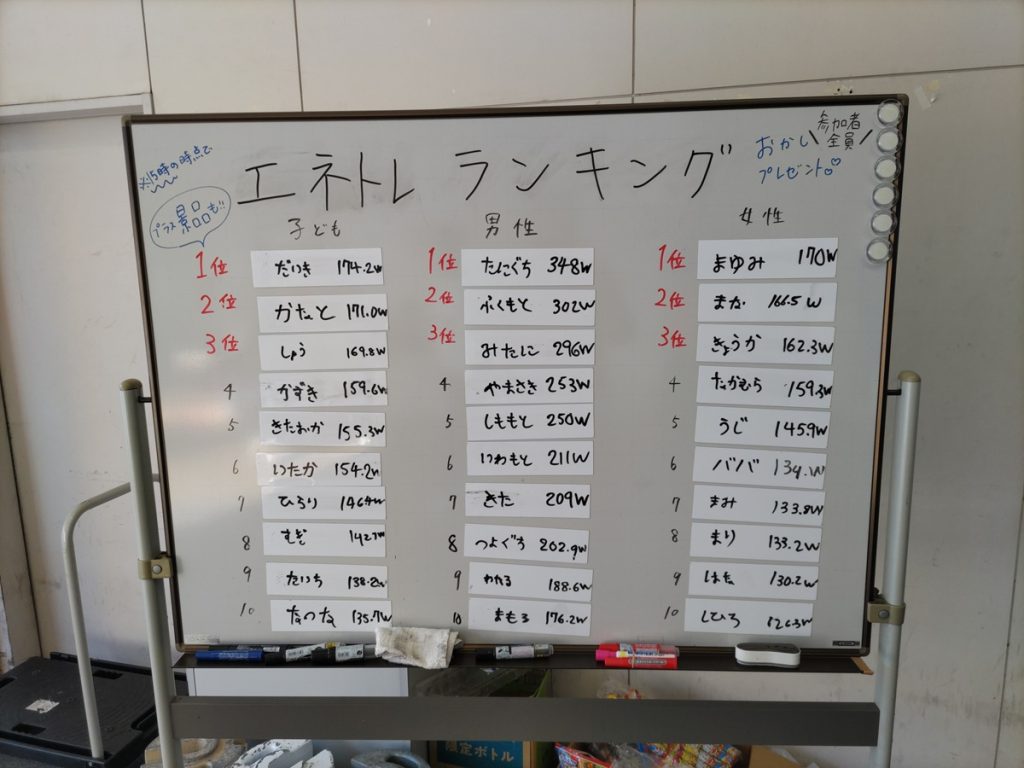 エネトレ ランキング
※15時の時点で
プラス景品も!!
参加者
全員
おかし
プレゼント♡
子ども
1位 だいき 174.2W
2位 かなと 171.0W
3位 しょう 169.8W
4 かずき 159.6W
5 きたおか 155.3W
6 いたか 154.2W
7 ひらり 146.4W
8 すぎ 142.7W
9 たいち 138.2W
10 なつな 135.7W
男性
1位 たにぐち 348W
2位 ふくもと 302W
3位 みたに 296W
4 やまさき 253W
5 しももと 250W
6 いわもと 211W
7 きた 209W
8 つよぐち 202.9W
9 わたる 188.6W
10 まもる 176.2W
女性
1位 まゆみ 170W
2位 まな 166.5W
3位 きょうか 162.3W
4 たかむら 159.3W
5 うじ 145.9W
6 ババ 134.W
7 まみ 133.8W
8 まり 133.2W
9 はな 130.2W
10 しひろ 126.3W
限定ボトル